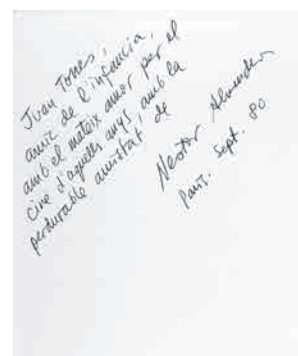 Juan Torres,
amic de l'infancia,
amb el mateix amor per el
cine d'aquells anys, amb la
perdurable amistat de
Nestor Almendros
París. Sept. 80